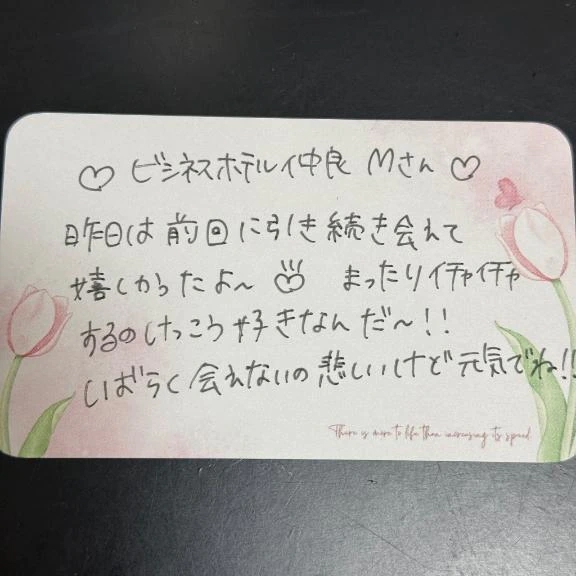 ♡ ビジネスホテル仲良 Mさん ♡
昨日は前回に引き続き会えて
嬉しかったよ〜 まったりイチャイチャ
するのけっこう好きなんだ〜!!
しばらく会えないの悲しいけど元気でね!!
There is more to life than increasing its speed.